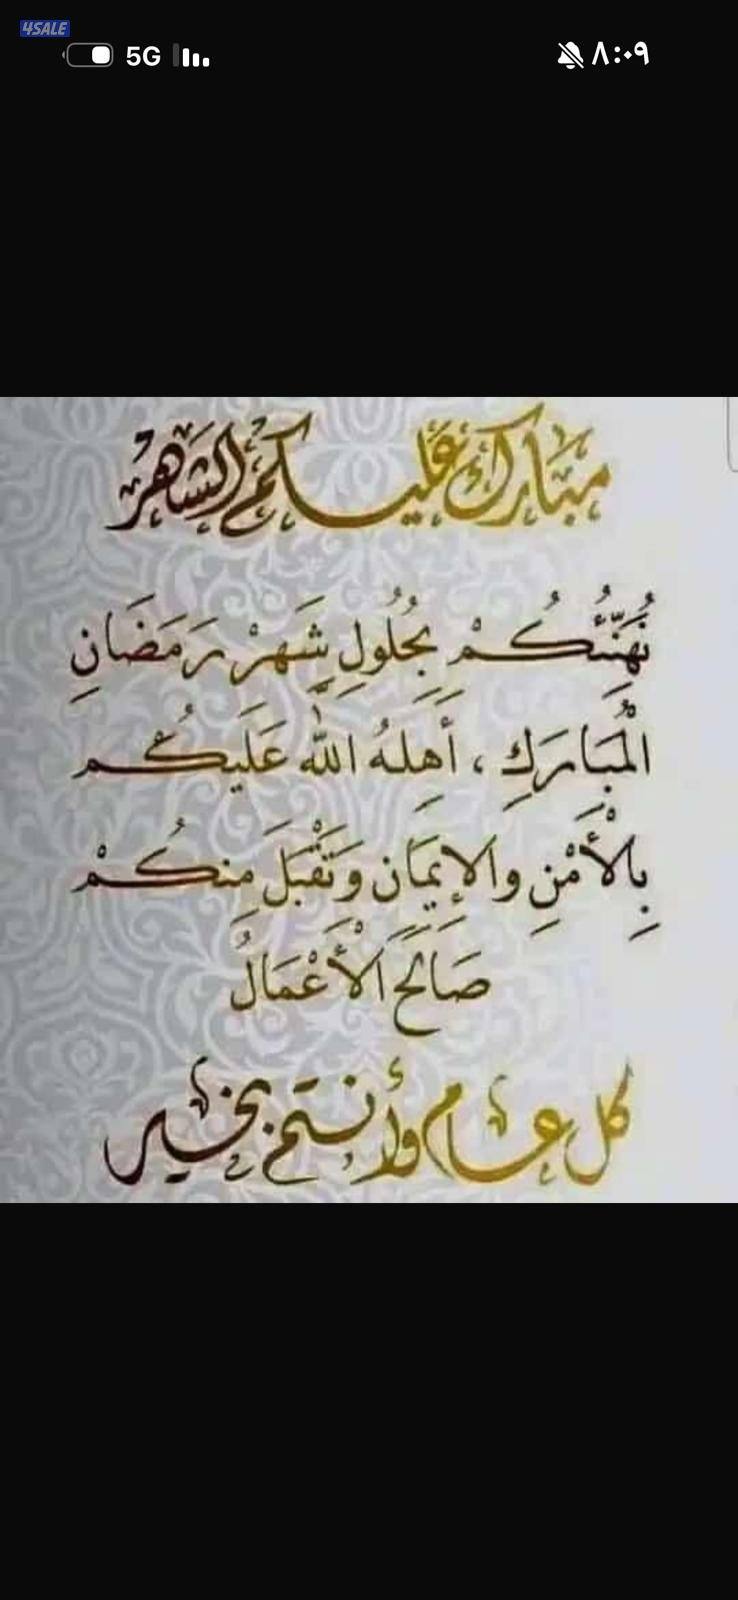 4SALE
5G
٨:٠٩
مبارك عليكم الشهر
نُهَنِّئُكُمْ بِحُلُولِ شَهْرِ رَمَضَانِ
الْمُبَارَكِ ، أَهِلهُ الله عَلَيكُم
بِالْأَمْنِ والإِيمَان وَتَقْبَل مِنكُمْ
صَالِحَ الْأَعْمَالُ
كل عام وأنتم بخير